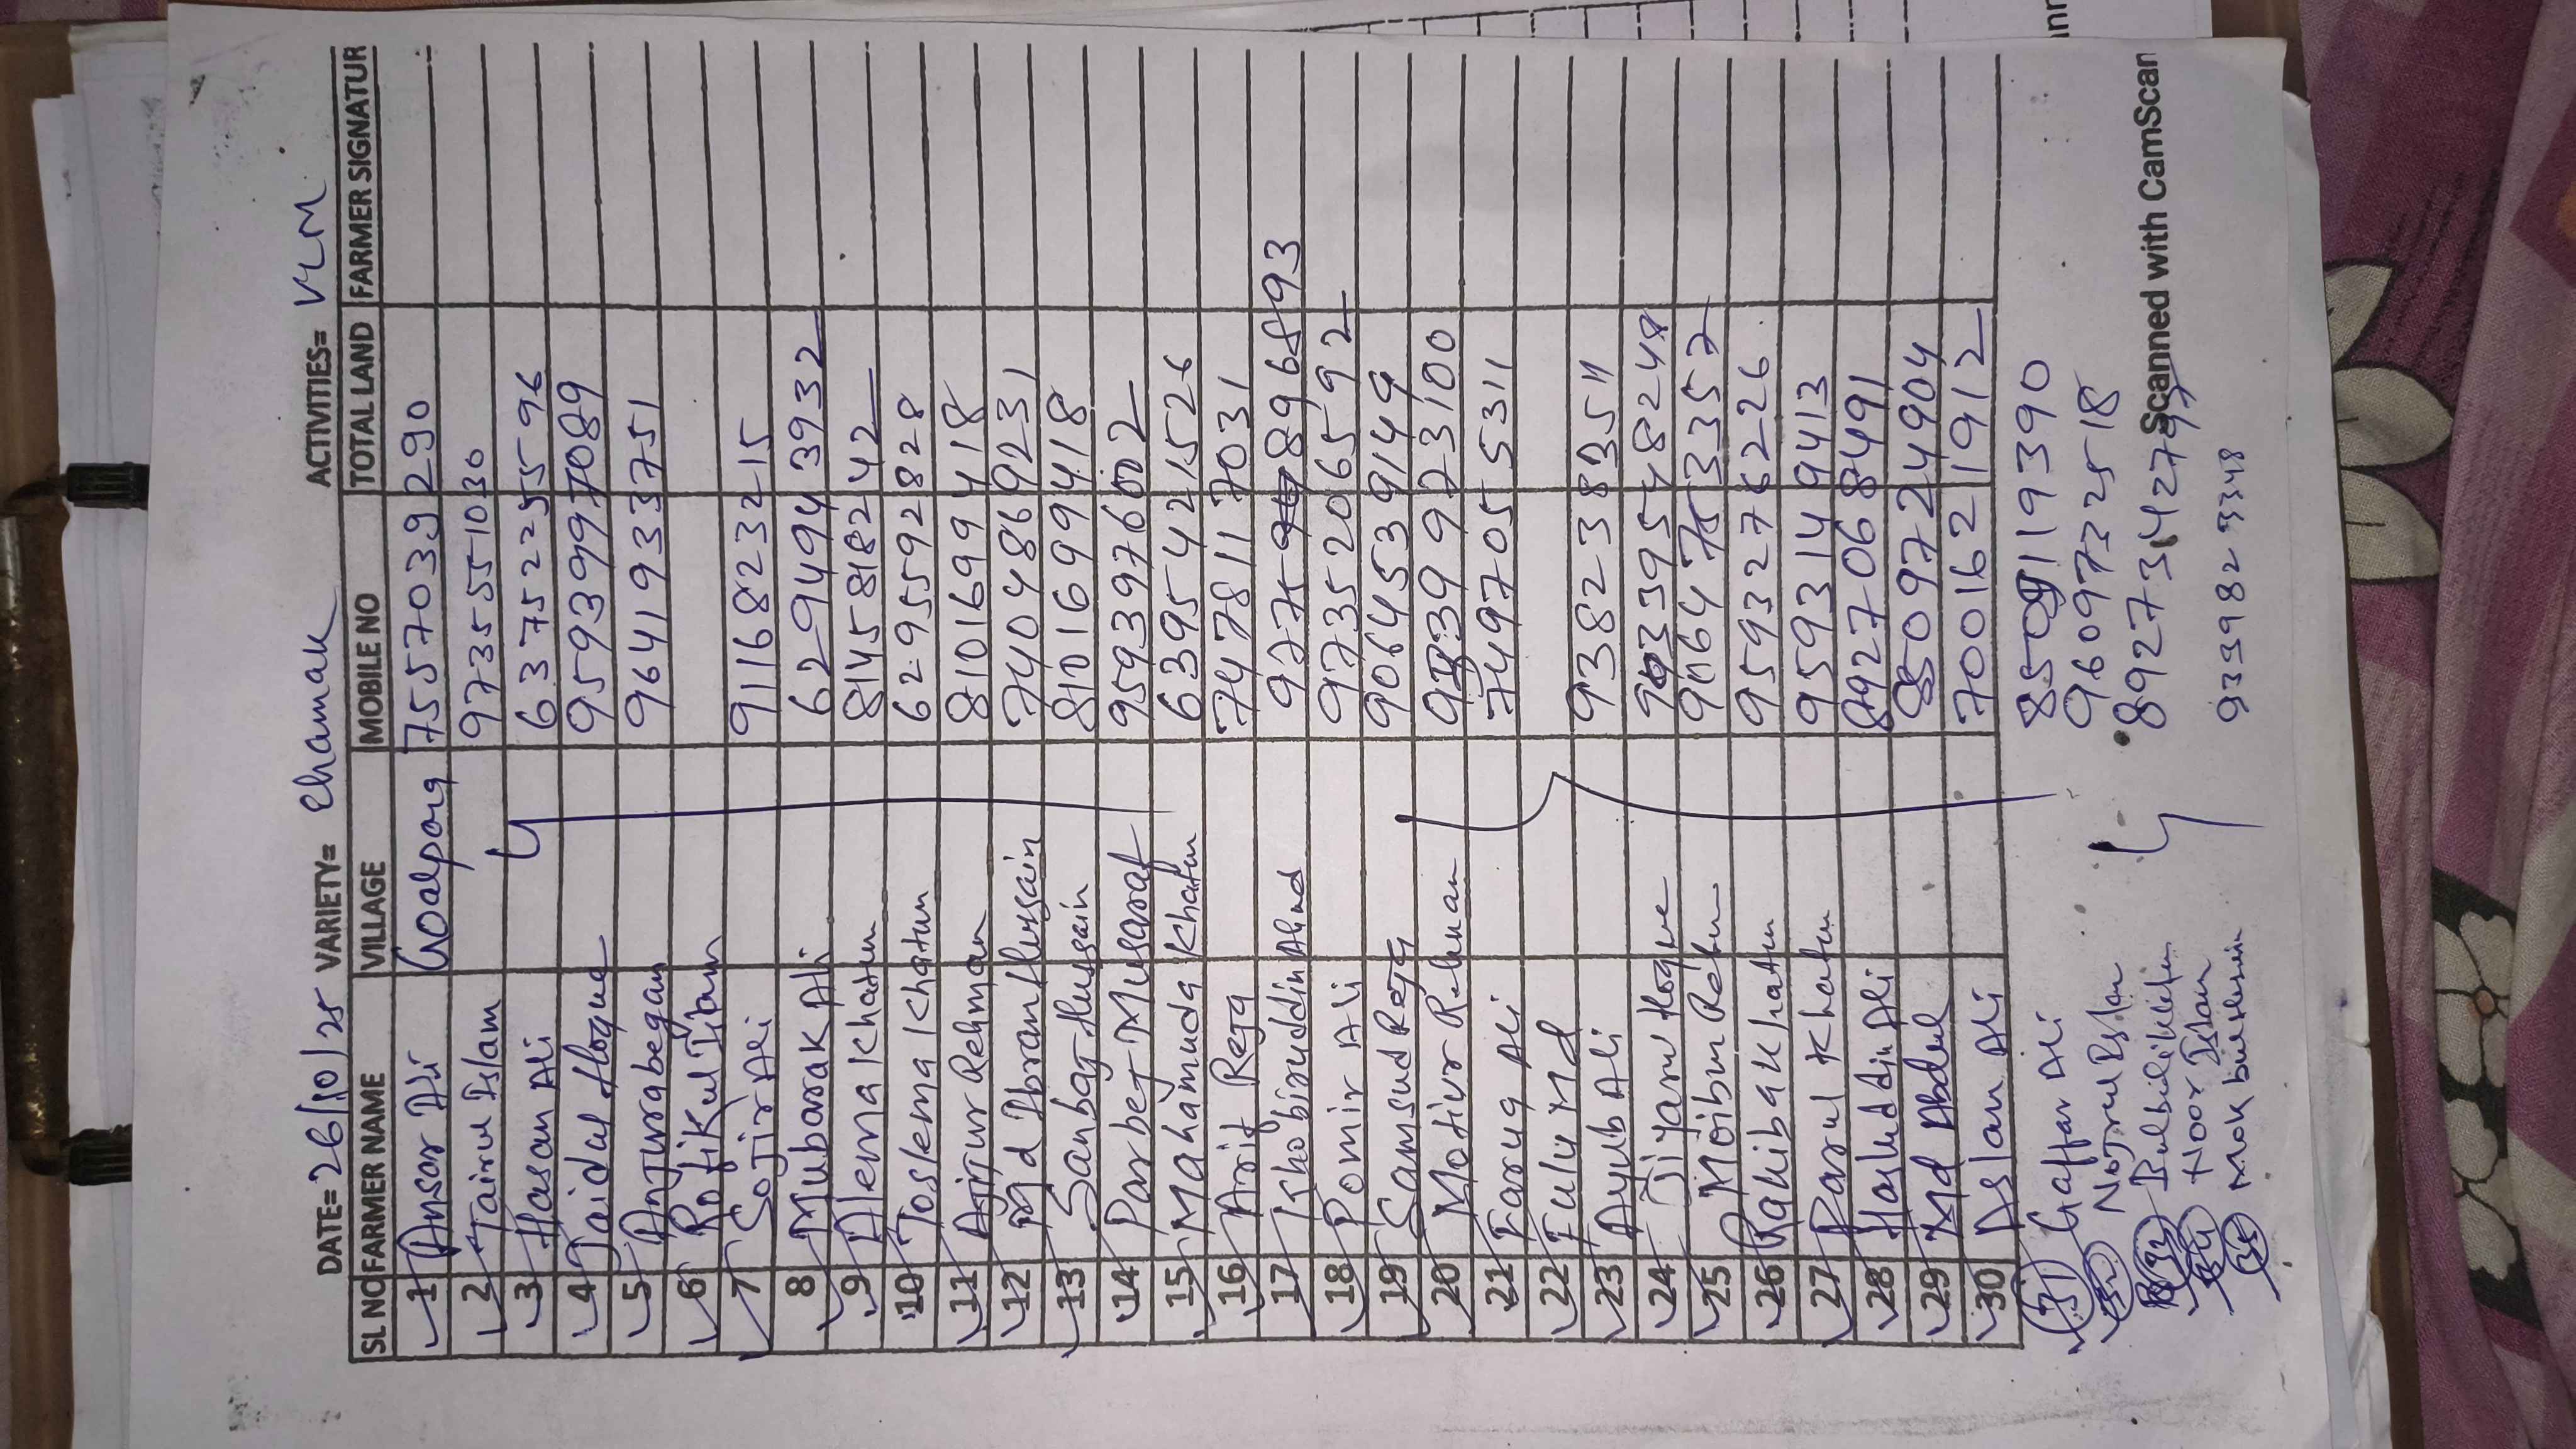 DATE= 26/10/25 VARIETY= Chamak ACTIVITIES= VLM
SL NO FARMER NAME VILLAGE MOBILE NO TOTAL LAND FARMER SIGNATUR
1 Ansar Ali Goalpong 7557039290
2 Tairul Islam 9735551030
3 Hasan Ali 6375225596
4 Jaidul Hoque 9593997089
5 Anjurabegam 9641933751
6 Rofikul Islam
7 Sojir Ali 9116823215
8 Mubarak Ali 6294943932
9 Alema Khatun 8145818242
10 Toslema Khatun 6295592828
11 Ajijur Rehman 8101699418
12 Md Ibran Hussain 7404869231
13 Sanbaj Hussain 8101699418
14 Parbej Musaraf 9593976002
15 Mahamuda Khatun 6395421526
16 Arif Reja 7478117031
17 Khobiruddin Ahmd 9775896893
18 Pomir Ali 9735206592
19 Samsud Reja 9064539149
20 Motiur Rehman 9339923100
21 Faruq Ali 7497055311
22 Fulu Md
23 Ayub Ali 9382383511
24 Jiyarul Hoque
25 Moibur Rehm
26 Rakiba Khatun 9593276226
27 Parul Khatun 9593149413
28 Hasluddin Ali 8927068491
29 Md Abdul 8509724904
30 Aslam Ali 7001621912
31 Gaffar Ali
32 Nojrul Islam 9609732518
8927314279
34 Noor Islam
35 9339829348
Scanned with CamScan